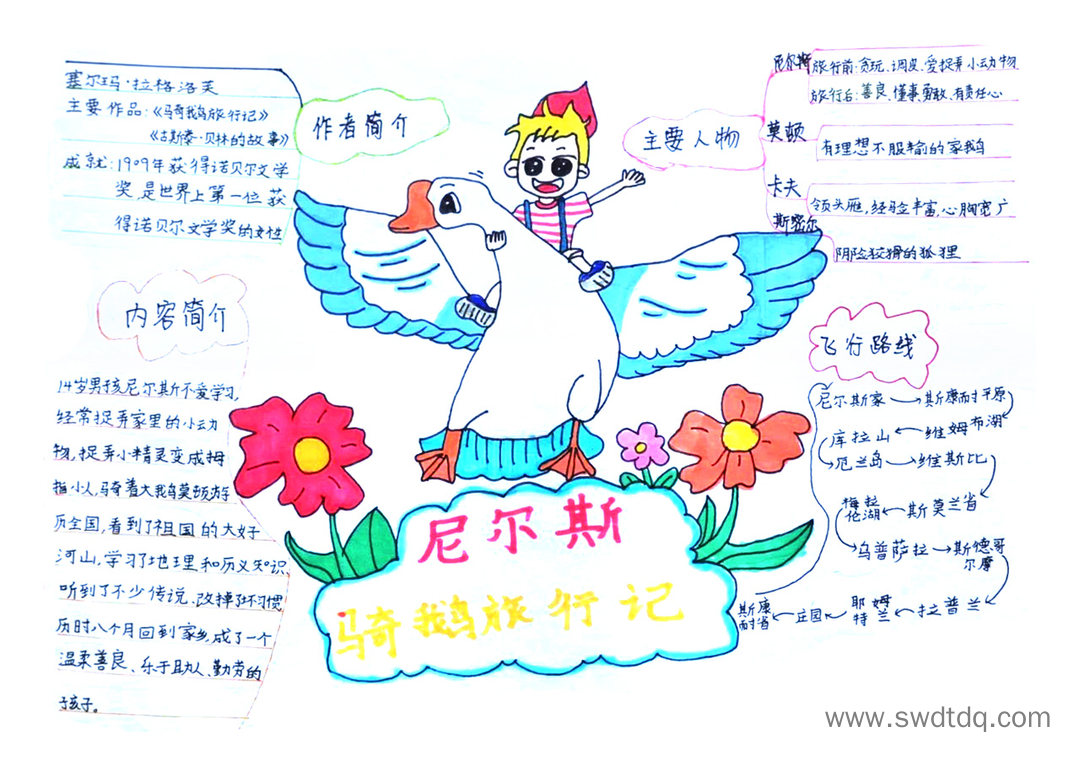 作者简介
塞尔玛·拉格洛芙
主要作品:《骑鹅旅行记》
《古斯泰·贝林的故事》
成就:1909年获得诺贝尔文学
奖,是世界上第一位获
得诺贝尔文学奖的女性
主要人物
尼尔斯
旅行前:贪玩、调皮、爱捉弄小动物
旅行后:善良、懂事、勇敢、有责任心
莫顿
有理想不服输的家鹅
卡夫
领头雁,经验丰富,心胸宽广
斯密尔
阴险狡猾的狐狸
内容简介
14岁男孩尼尔斯不爱学习,
经常捉弄家里的小动
物,捉弄小精灵变成拇
指小人,骑着大鹅莫顿游
历全国,看到了祖国的大好
河山,学习了地理和历史知识,
听到了不少传说、改掉了坏习惯
历时八个月回到家乡,成了一个
温柔善良、乐于助人、勤劳的
好孩子。
飞行路线
尼尔斯家→斯康耐平原
库拉山←维姆布湖
厄兰岛→维斯比
梅拉
伦湖←斯莫兰省
乌普萨拉→斯德哥
尔摩
斯康
耐省←庄园←耶姆
特兰←拉普兰
尼尔斯
骑鹅旅行记
www.swdtdq.com